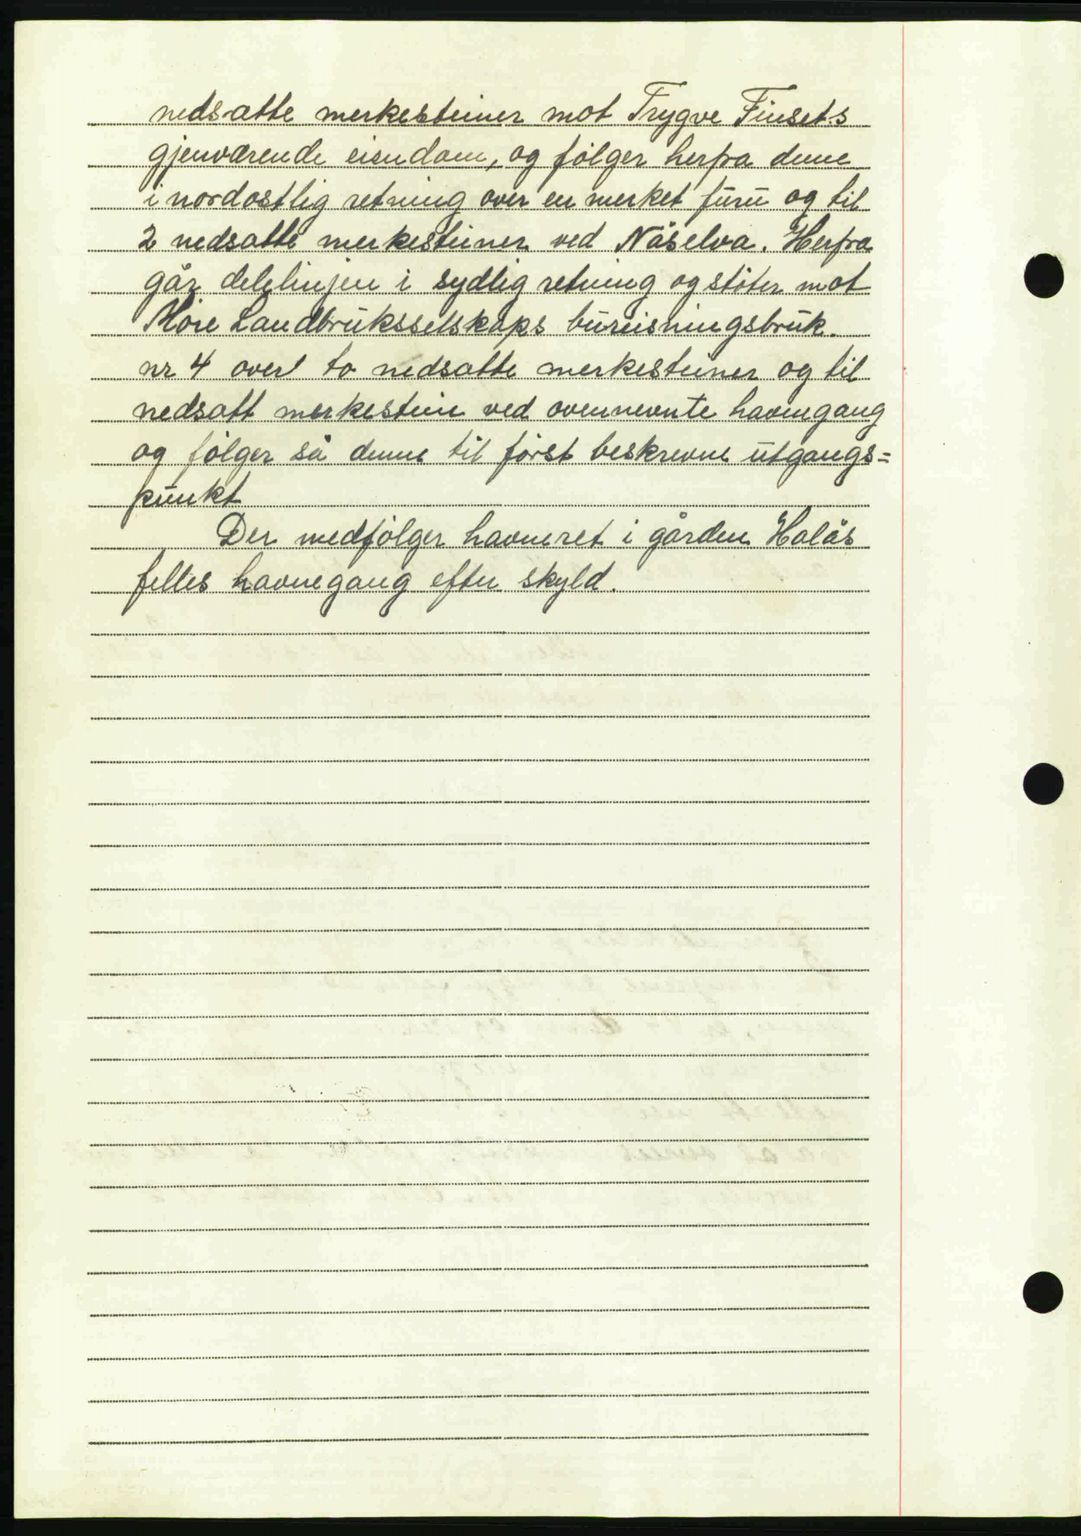 nedsatte merkesteiner mot Trygve Finsets
gjenværende eiendom, og følger herfra denne
i nordostlig retning over en merket furu og til
2 nedsatte merkesteiner ved Nåselva. Herfra
går delelinjen i sydlig retning og støter mot
Møre Landbruksselskaps bureisningsbruk.
nr 4 over to nedsatte merkesteiner og til
nedsatt merkestein ved ovennevnte havnegang
og følger så denne til først beskrevne utgangs=
punkt
Der medfølger havneret i gården Holås
felles havnegang efter skyld.